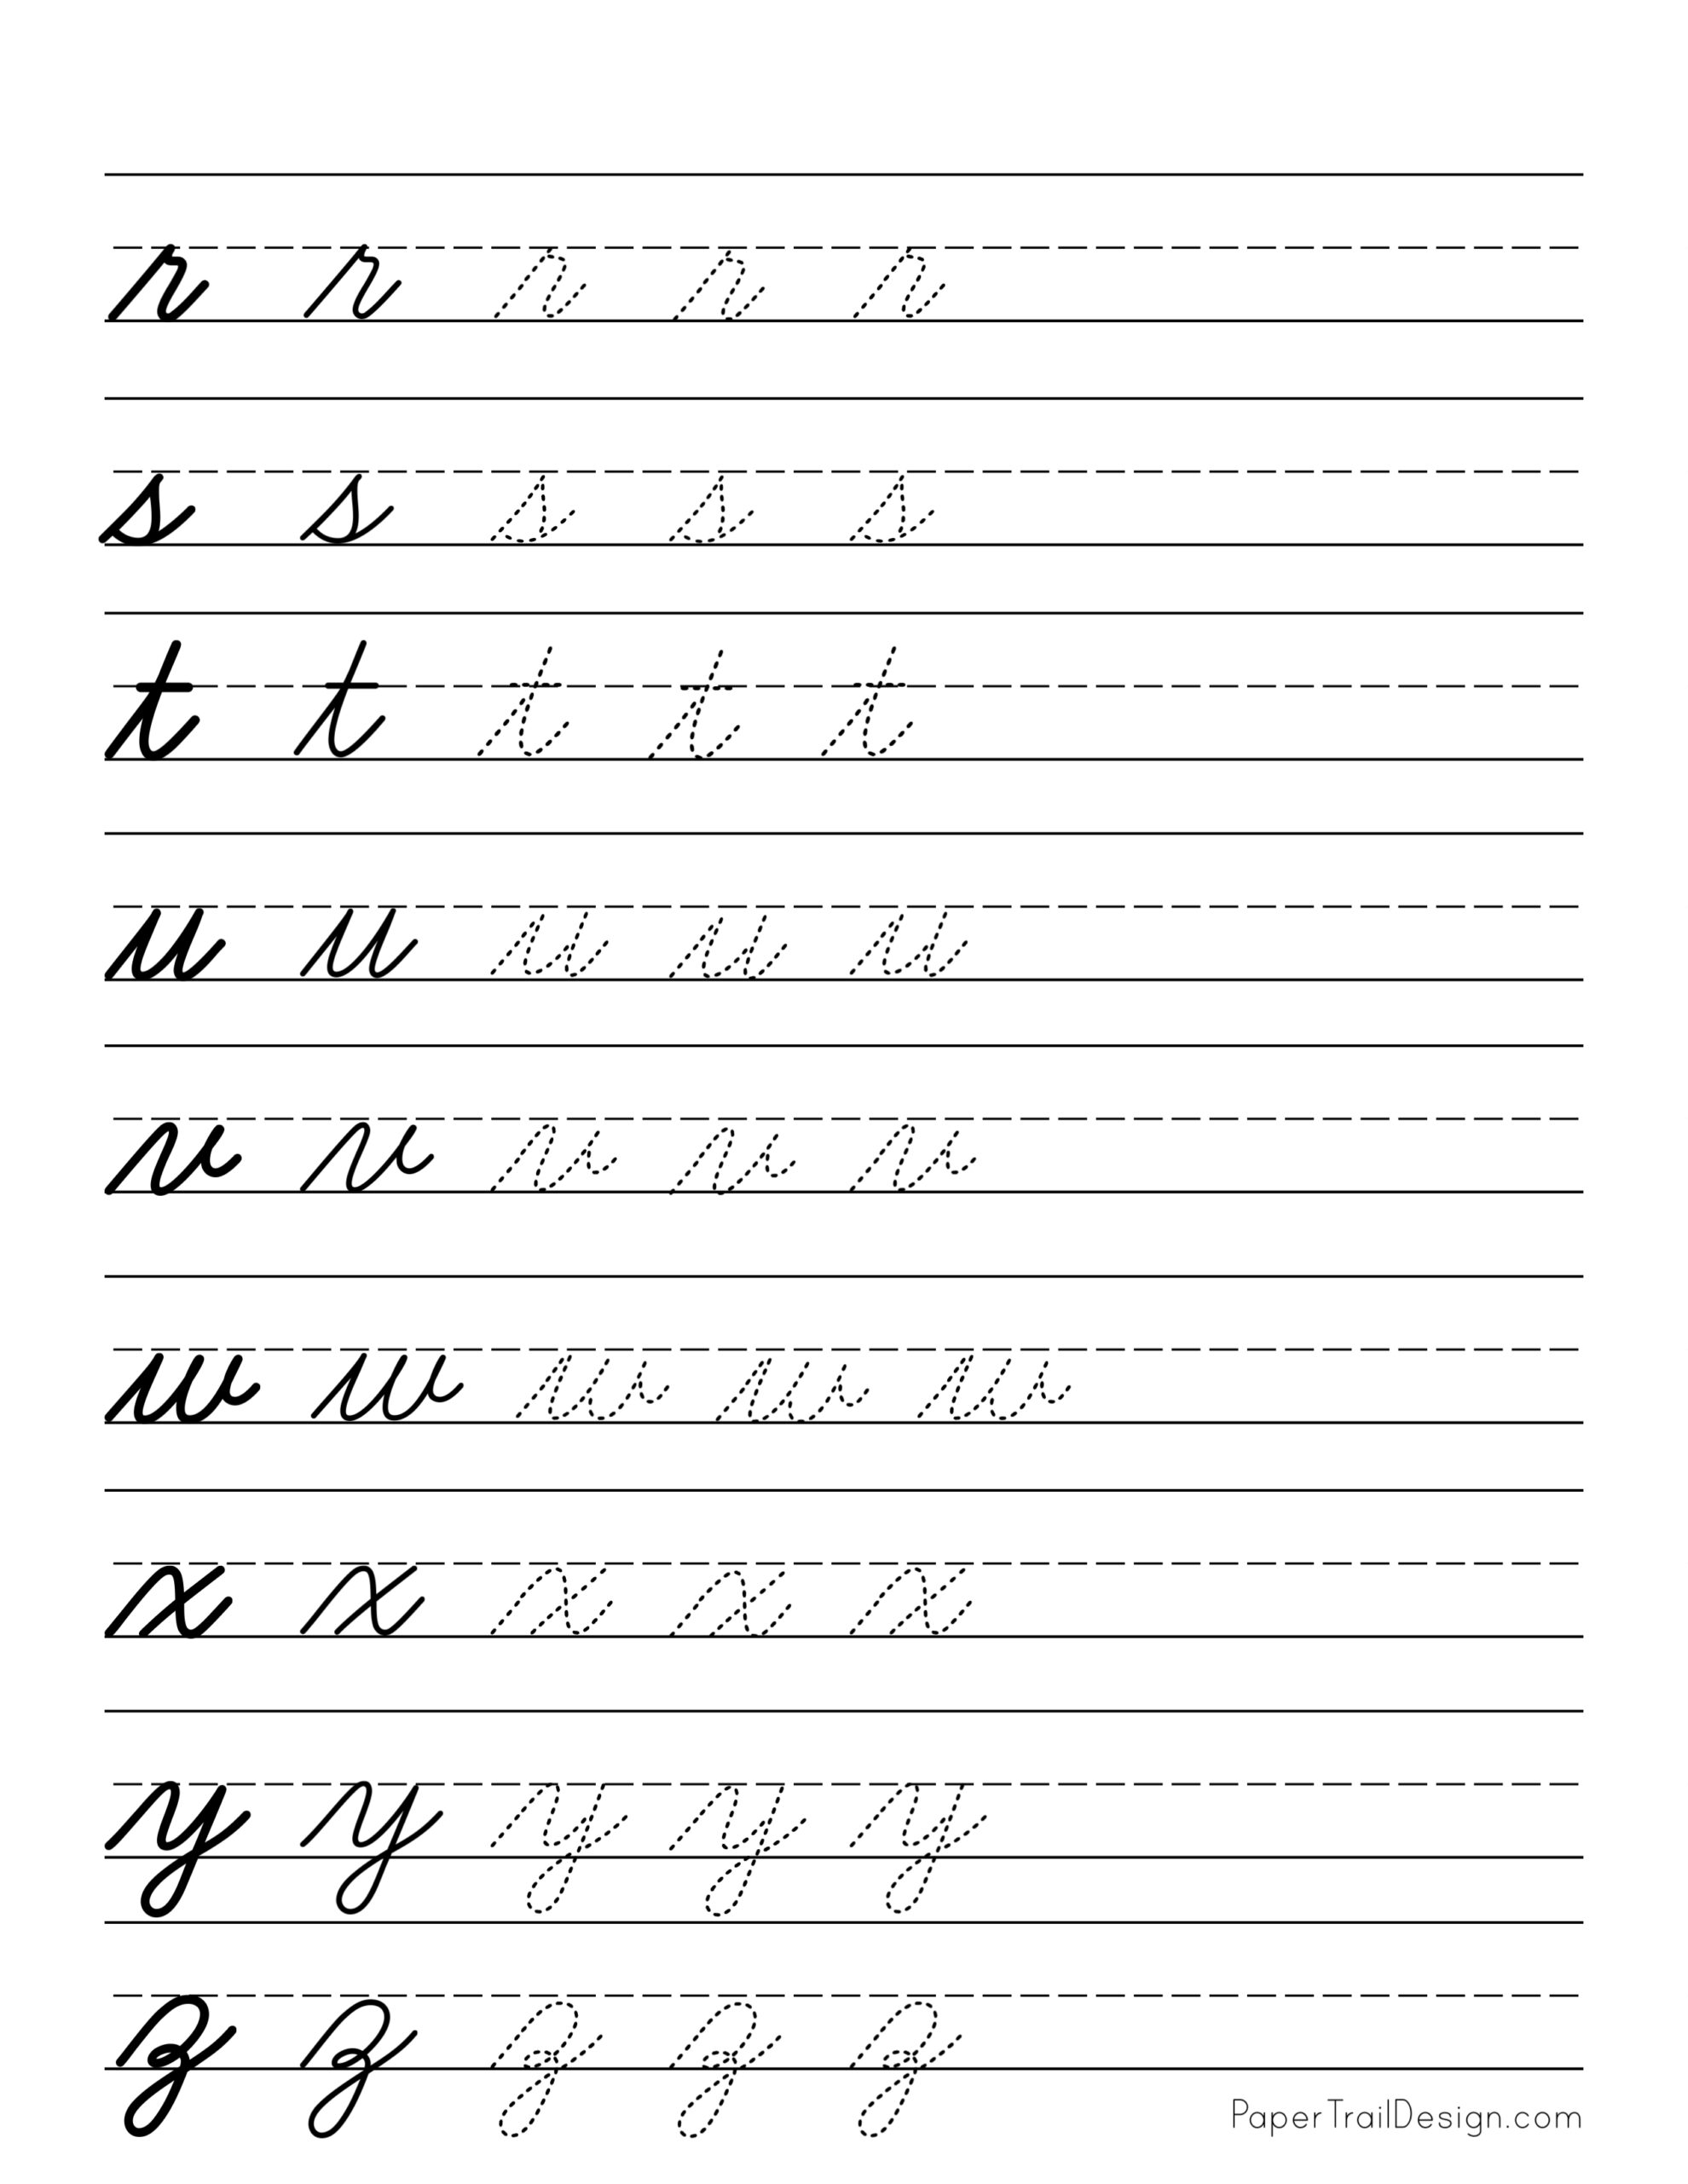 r r r r r
s s s s s
t t t t t
u u u u u
v v v v v
w w w w w
x x x x x
y y y y y
z z z z z
PaperTrailDesign.com